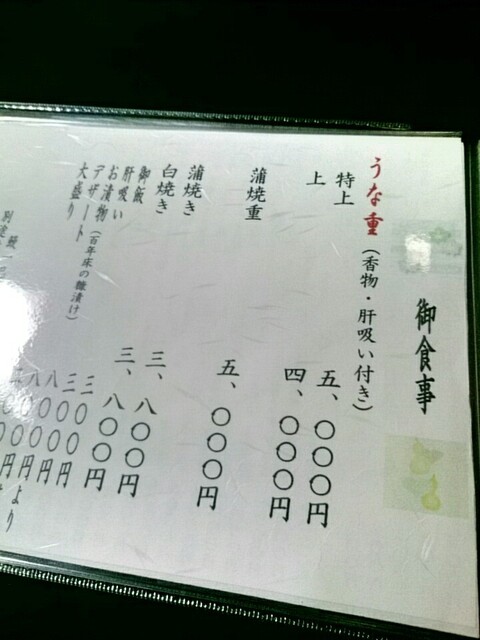 御食事
うな重（香物・肝吸い付き）
特上　五、〇〇〇円
上　四、〇〇〇円
蒲焼重　五、〇〇〇円
蒲焼き　三、八〇〇円
白焼き　三、八〇〇円
御飯　三〇〇円
肝吸い　三〇〇円
お漬物（百年床の糠漬け）　八〇〇円
デザート　八〇〇円より
大盛り